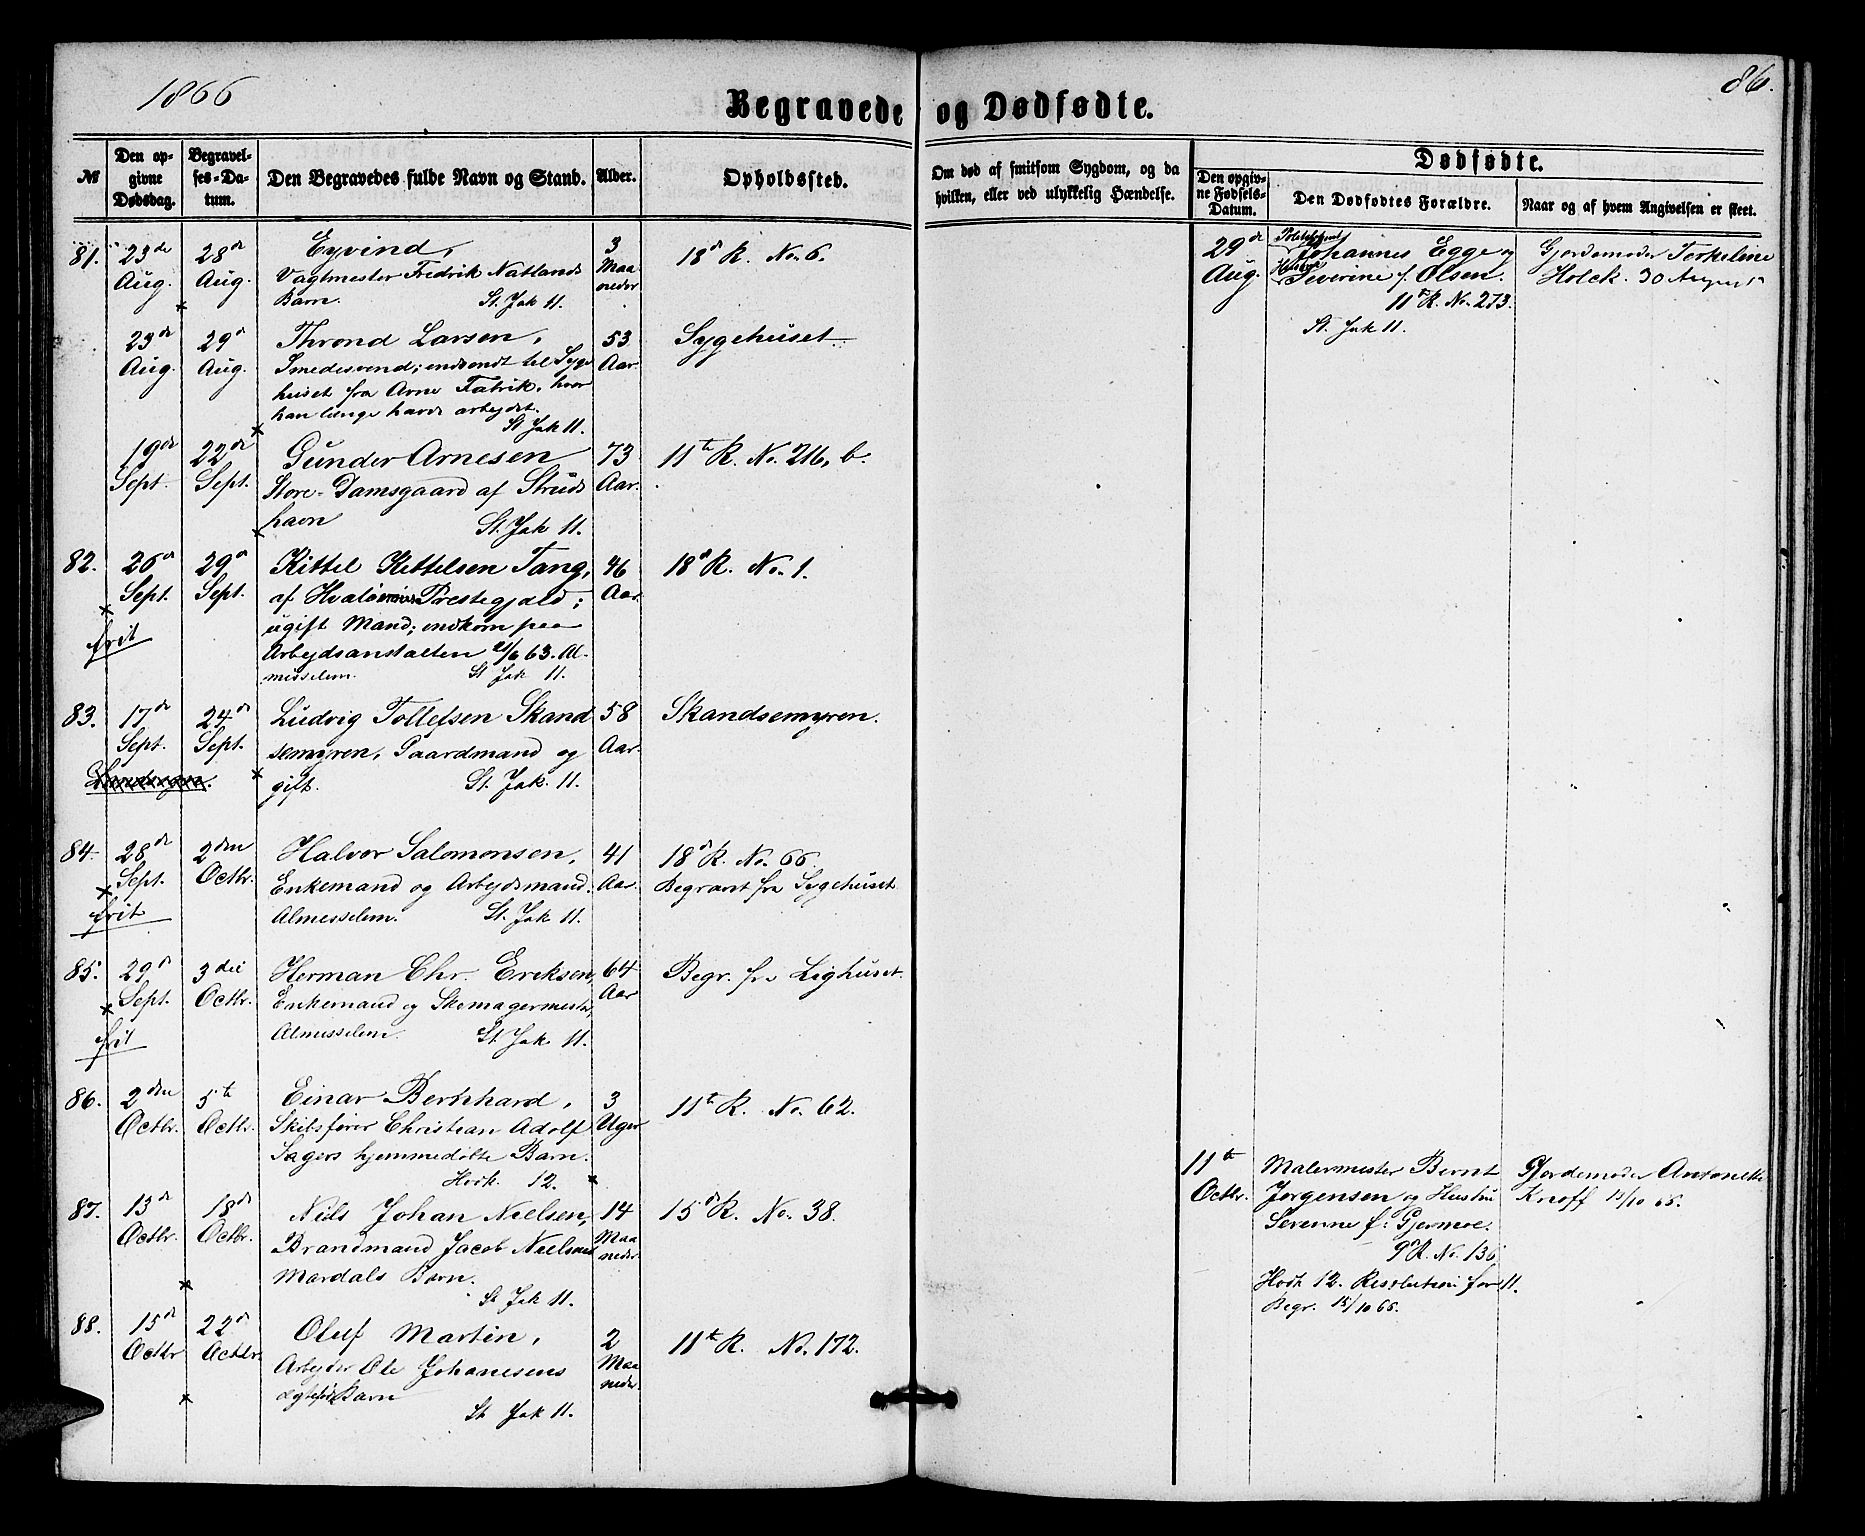 1866
86.
Begravede og Dødfødte.
№
Den opgivne Dødsdag.
Begravelses-Datum.
Den Begravedes fulde Navn og Stand.
Alder.
Opholdssted.
Om død af smitsom Sygdom, og da hvilken, eller ved ulykkelig Hændelse.
Dødfødte.
Den opgivne Fødsels-Datum.
Den Dødfødtes Forældre.
Naar og af hvem Angivelsen er skeet.
81. 23de Aug. 28de Aug.
Eyvind,
Vagtmester Fredrik Natlands
Barn. St. Jak 11.
3 Maaneder
18de R. No. 6.
29de Aug.
Johannes Egge og
Hustru Severine f. Olsen.
11te R. No. 273.
St. Jak 11.
Gjordemoder Torkeline
Holck. 30 August
23de Aug. 29de Aug.
Thrond Larsen,
Smedesvend; indsendt til Syge
huset fra Arne Fabrik, hvor
han længe havde arbejdet.
St Jak 11.
53 Aar.
Sygehuset.
19de Sept. 22de Sept.
Gunder Arnesen
Store-Damsgaard af Struds
havn St. Jak 11.
73 Aar.
11te R. No. 216, b.
82. 26de Sept. 29de Sept.
frit
Kittel Kittelsen Tang,
af Hvaløernes Prestegjæld;
ugift Mand; indkom paa
Arbejdsanstalten 2/6 63. Al-
misselem. St Jak 11.
46 Aar.
18de R. No. 1.
83. 17de Sept. 24de Sept.
Ludvig Tollefsen Skand
semyren, Gaardmand og
gift. St. Jak. 11.
58 Aar.
Skandsemyren.
84. 28de Sept. 2den Octbr.
frit
Halvor Salomonsen,
Enkemand og Arbejdsmand.
Almisselem. St. Jak 11.
41 Aar.
18de R. No. 66.
Begravet fra Sygehuset.
85. 29de Sept. 3die Octbr.
frit
Herman Chr. Ericksen,
Enkemand og Skomagermester,
Almisselem. St Jak 11.
64 Aar
Begr. fra Lighuset.
86. 2den Octbr. 5te Octbr.
Einar Bernhard,
Skibsfører Christian Adolf
Sagers hjemmedøbte Barn.
Hosk. 12.
3 Uger
11te R. No. 62.
11te Octbr.
Malermester Bernt
Jørgensen og Hustru
Severine f. Gjermoe.
9de R. No. 136
Hosk 12. Resolution for 11.
Begr. 15/10 66.
Gjordemoder Antonette
Knoff 12/10 66.
87. 13de Octbr. 18de Octbr.
Niels Johan Nielsen,
Brandmand Jacob Nielsens
Mardals Barn.
St Jak 11.
14 Maaneder
15de R. No. 38.
88. 15de Octbr 22de Octbr.
Oluf Martin,
Arbejder Ole Johanesens
ægtefød Barn
St Jak 11.
2 Maaneder.
11te R. No. 172.